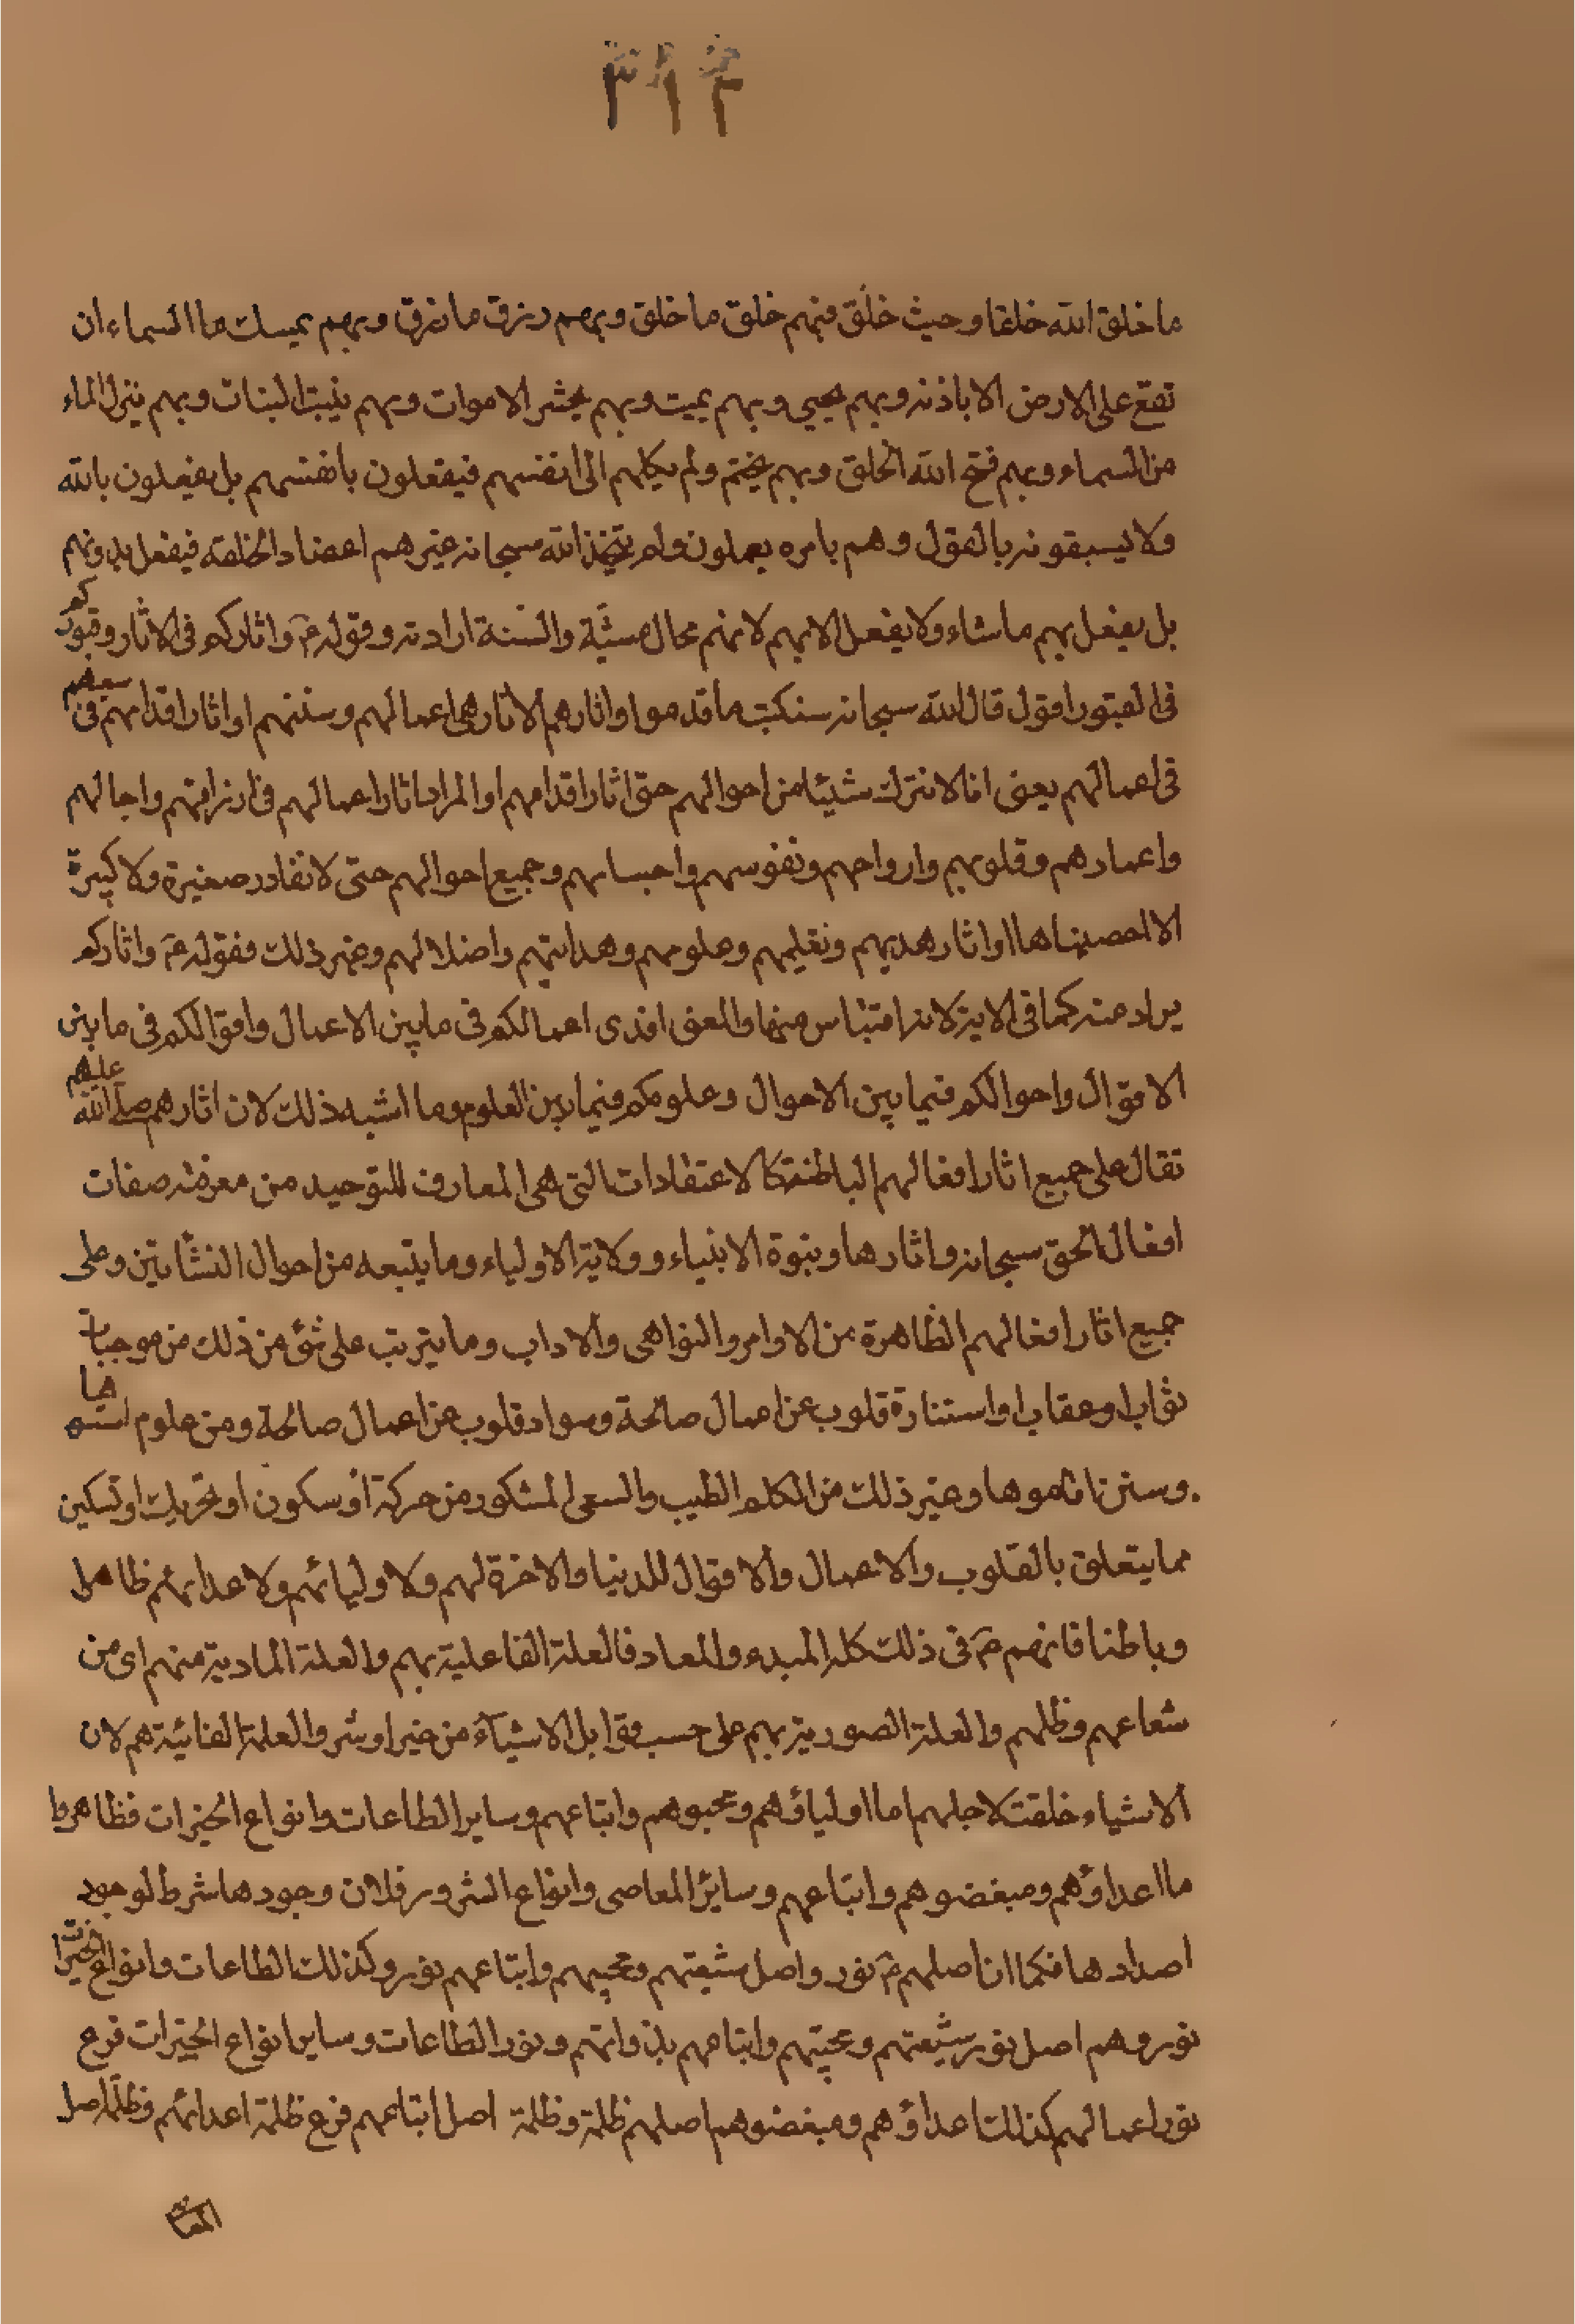 ٣١٢
ما خلق الله خلقا وحيث خلق فبهم خلق ما خلق وبهم رزق ما رزق وبهم يمسك ما السماء ان
تقع على الارض الا باذنه وبهم يحيي وبهم يميت وبهم يحشر الاموات وبهم ينبت النبات وبهم ينزل الماء
من السماء وبهم فتح الله الخلق وبهم يختم ولم يكلهم الى انفسهم فيفعلون بانفسهم بل يفعلون بالله
ولا يسبقونه بالقول وهم بامره يعملون ولم يتخذ الله سبحانه غيرهم اعضادا لخلقه فيفعل بدونهم
بل يفعل بهم ما شاء ولا يفعل الا بهم لانهم محال مشيّة والسنة ارادته وقوله ع٘ واثاركم فى الاثار وقبوركم
فى القبور اقول قال الله سبحانه سنكتب ما قدموا واثارهم الاثار هى اعمالهم وسننهم او اثار اقدامهم فى سعيهم
فى اعمالهم يعنى انا لا نترك شيئا من احوالهم حتى اثار اقدامهم او المراد اثار اعمالهم فى ارزاقهم واجالهم
واعمارهم وقلوبهم وارواحهم ونفوسهم واجسامهم وجميع احوالهم حتى لا نغادر صغيرة ولا كبيرة
الا احصيناها او اثار هديهم وتعليمهم وعلومهم وهدايتهم واضلالهم وغير ذلك فقوله ع٘ واثاركم
يراد منه كما فى الاية لانه اقتباس منها والمعنى افدى اعمالكم فى ما بين الاعمال واقوالكم فى ما بين
الاقوال واحوالكم فيما بين الاحوال وعلومكم فيما بين العلوم وما اشبه ذلك لان اثارهم صلى الله عليهم
تقال على جميع اثار افعالهم الباطنة كالاعتقادات التى هى المعارف للتوحيد من معرفة صفات
افعال الحق سبحانه واثارها وبنبوة الانبياء وولاية الاولياء وما يتبعه من احوال النشأتين وعلى
جميع اثار افعالهم الظاهرة من الاوامر والنواهى والاداب وما يترتب على شئ من ذلك من موجبات
ثواب او عقاب او استنارة قلوب عن اعمال صالحة وسواد قلوب عن اعمال صالحة ومن علوم اسسوها
وسنن اقاموها وغير ذلك من الكلم الطيب والسعى المشكور من حركة او سكون او تحريك او تسكين
مما يتعلق بالقلوب والاعمال والاقوال للدنيا والاخرة لهم ولاوليائهم ولاعدائهم ظاهرا
وباطنا فانهم ع٘ فى ذلك كله المبدء والمعاد فالعلة الفاعلية بهم والعلة المادية منهم اى من
شعاعهم وظلهم والعلة الصورية بهم على حسب قوابل الاشيآء من خير او شر والعلة الغائية هم لان
الاشياء خلقت لاجلهم اما اولياؤهم ومحبوهم واتباعهم وساير الطاعات وانواع الخيرات فظاهر وا
ما اعداؤهم ومبغضوهم واتباعهم وسائر المعاصى وانواع الشرور فلان وجودها شرط لوجود
اضدادها فكما ان اصلهم ع٘ نور واصل شيعتهم ومحبيهم واتباعهم نور وكذلك الطاعات وانواع الخيرات
نور وهم اصل نور شيعتهم ومحبيهم واتباعهم بذواتهم ونور الطاعات وساير انواع الخيرات فرع
نور اعمالهم كذلك اعداؤهم ومبغضوهم اصلهم ظلمة وظلمة اصل اتباعهم فرع ظلمة اعدائهم وظلمة اصل